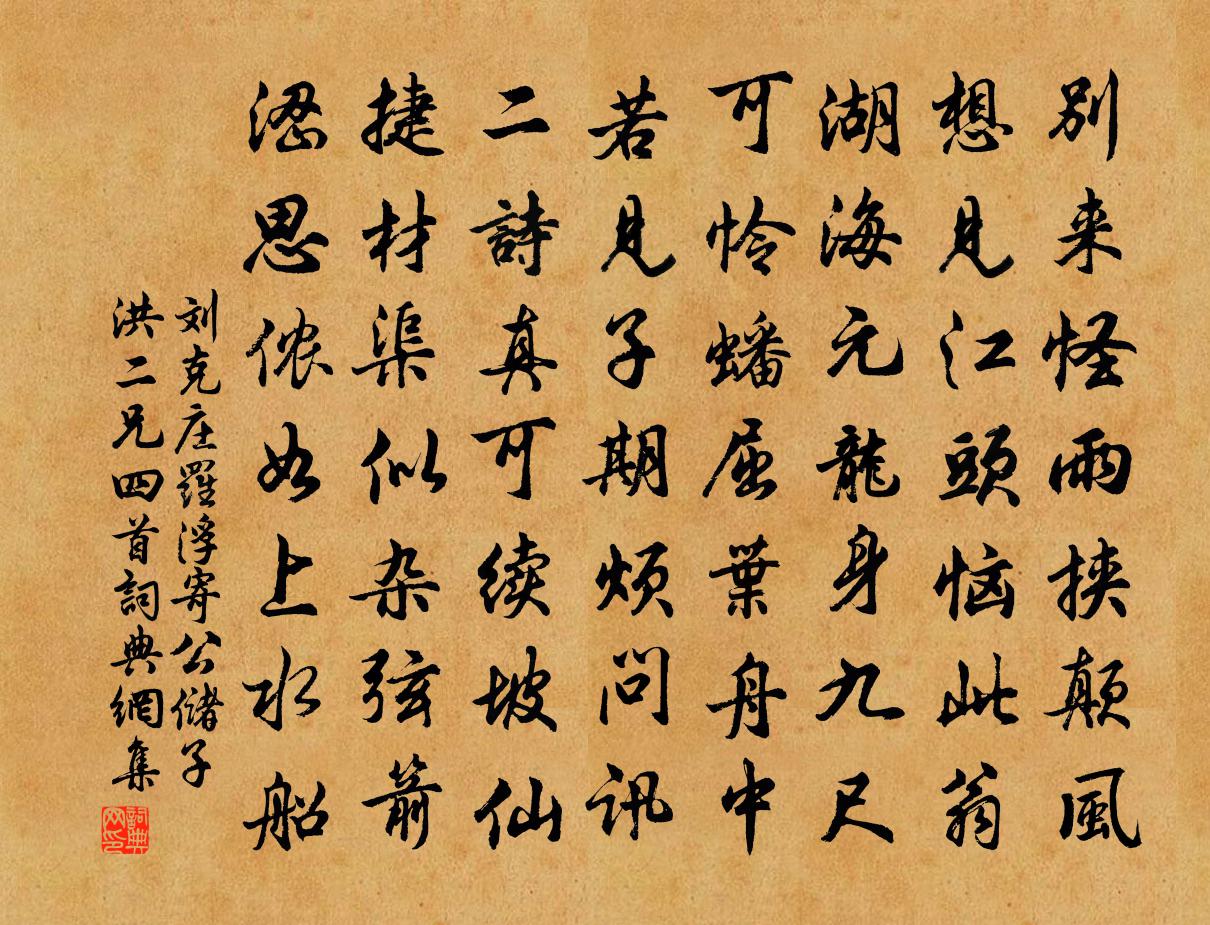 別来怪雨挾颠風
想見江頭恼此翁
湖海元龍身九尺
可怜蟠屈葉舟中
若見子期烦問訊
二詩真可续坡仙
捷材渠似杂弦箭
涩思侬如上水船
刘克庄羅浮寄公儲子
洪二兄四首詞典網集
詞典网印